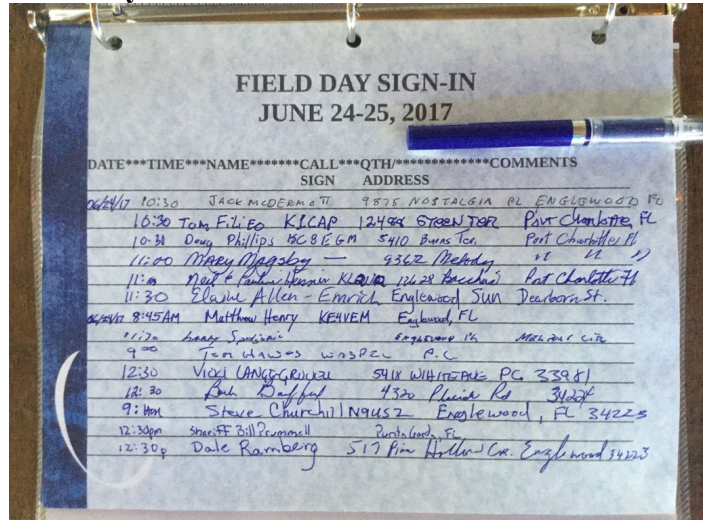 FIELD DAY SIGN-IN
JUNE 24-25, 2017
DATE***TIME***NAME*******CALL***QTH/*************COMMENTS
SIGN ADDRESS
06/24/17 10:30 JACK MCDERMOTT 9875 NOSTALGIA PL ENGLEWOOD FL
10:30 Tom FiLiEo K1CAP STEEN TER Port Charlotte, FL
10:30 Doug Phillips KC8EGM 5410 Burns Ter. Port Charlotte Fl
11:00 MARY Magsby — 9362 Melody " " "
11:00 Neil & Pauline 12628 Port Charlotte Fl
11:30 Elaine Allen-Emrich Englewood Sun Dearborn St.
8:45AM Matthew Henry KE4VEM Englewood, FL
Larry
9:00 Tom HAWES WA3PZL P.C
12:30 Vicki 5418 WHITE AVE PC 33981
12:30 Bob 4320 Rd 34224
9: Steve Churchill N9USZ Englewood, FL 34223
12:30pm Sheriff Bill Prummell Punta Gorda, FL
12:30p Dale Ramberg 517 Pine Hollow Cir. Englewood 34223